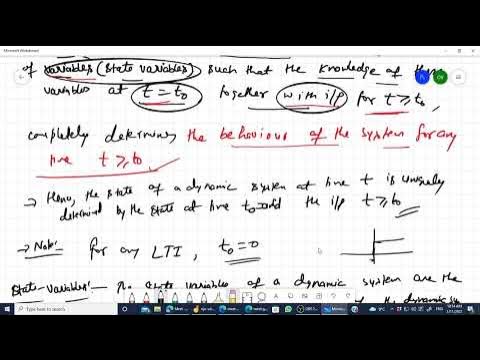 Microsoft Whiteboard
of variables (State variables) such that the knowledge of these
variables at t = t₀ together with i/p for t ≥ t₀,
completely determines the behaviour of the system for any
time t ≥ t₀
→ Hence, the state of a dynamic system at time t is uniquely
determined by the state at time t₀ and the i/p t ≥ t₀
→ Note: for any LTI, t₀ = 0
State-Variables:- The state variables of a dynamic system are the
of the dynamic